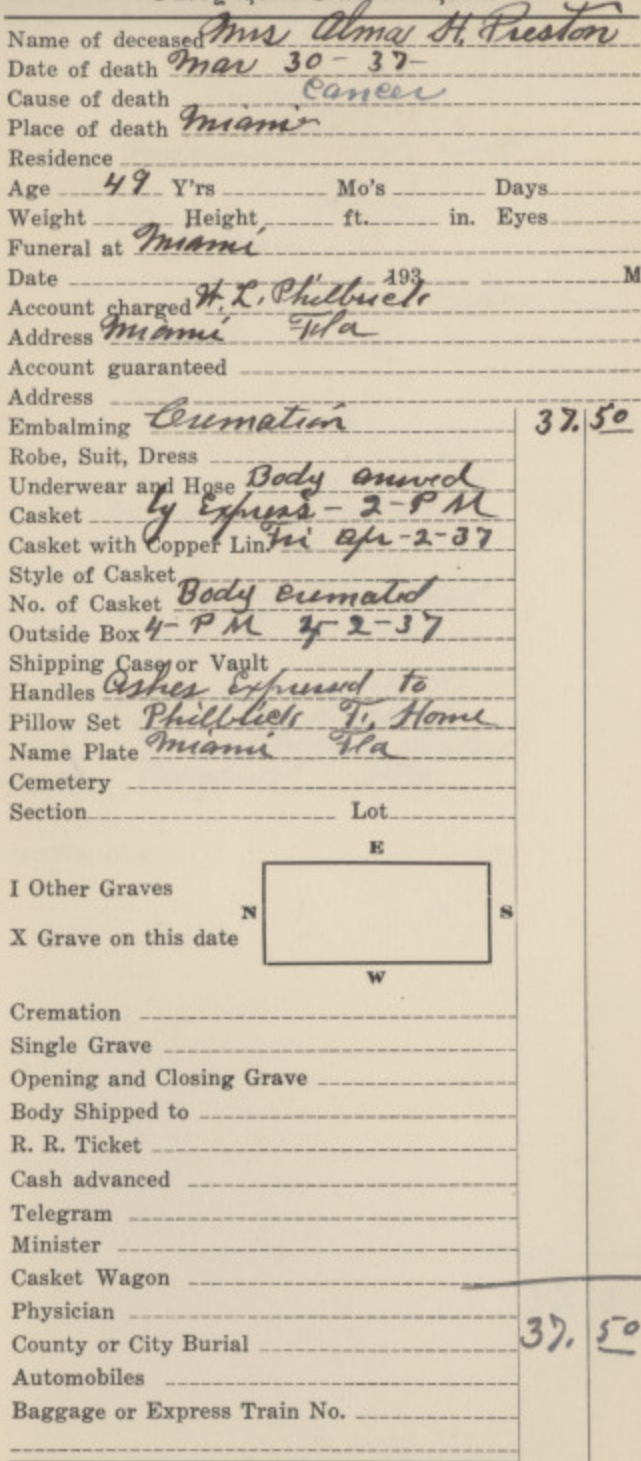 Name of deceased Mrs Alma H. Preston
Date of death Mar 30 - 37-
Cause of death Cancer
Place of death Miami
Residence
Age 49 Y'rs Mo's Days
Weight Height ft. in. Eyes
Funeral at Miami
Date 193 M
Account charged H. L. Philbrick
Address Miami Fla
Account guaranteed
Address
Embalming Cremation 37. 50
Robe, Suit, Dress
Underwear and Hose Body arrived
Casket by Express - 2 - P M
Casket with Copper Lin Fri Apr - 2 - 37
Style of Casket
No. of Casket Body cremated
Outside Box 4 - P M 4 - 2 - 37
Shipping Case or Vault
Handles Ashes Expressed to
Pillow Set Philbrick F. Home
Name Plate Miami Fla
Cemetery
Section Lot
E
I Other Graves
N S
X Grave on this date
W
Cremation
Single Grave
Opening and Closing Grave
Body Shipped to
R. R. Ticket
Cash advanced
Telegram
Minister
Casket Wagon
Physician
County or City Burial 37. 50
Automobiles
Baggage or Express Train No.